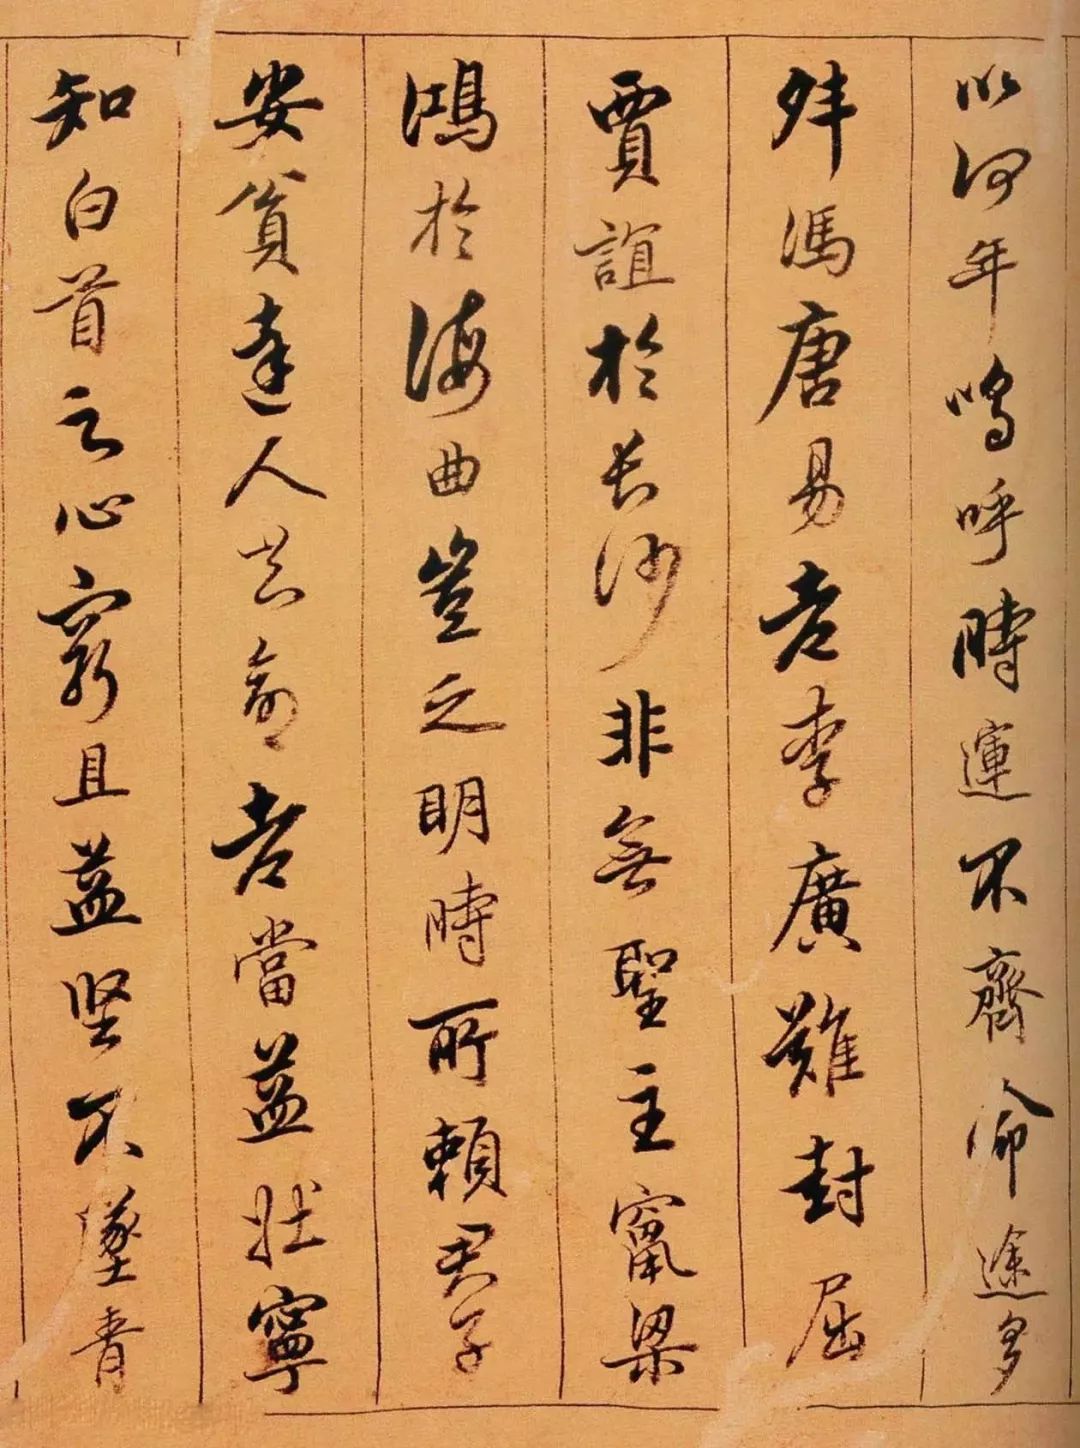 以何年嗚呼時運不齊命途多
舛馮唐易老李廣難封屈
賈誼於長沙非無聖主竄梁
鴻於海曲豈乏明時所賴君子
安貧達人知命老當益壯寧
知白首之心窮且益堅不墜青